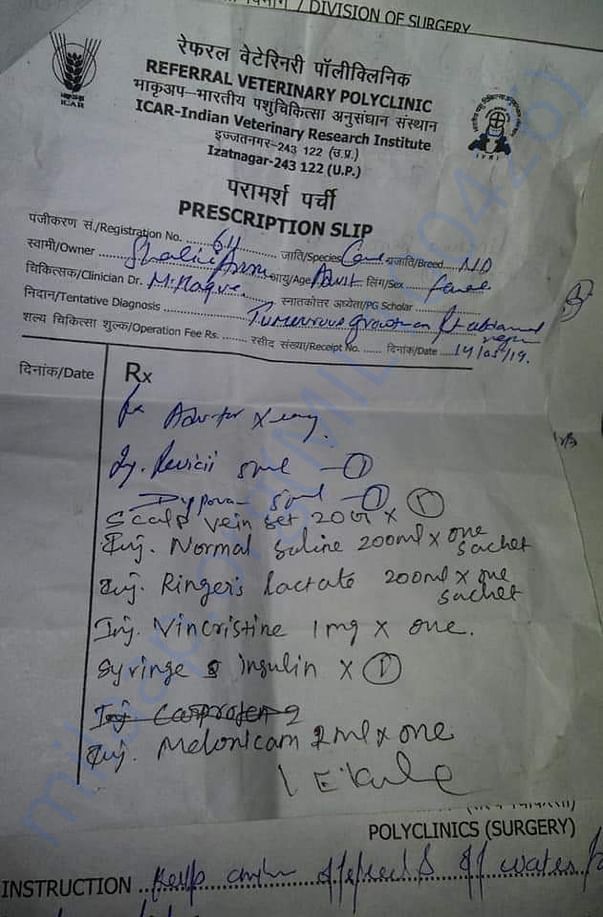 / DIVISION OF SURGERY
रेफरल वेटेरिनरी पॉलीक्लिनिक
REFERRAL VETERINARY POLYCLINIC
भाकृअप-भारतीय पशुचिकित्सा अनुसंधान संस्थान
ICAR-Indian Veterinary Research Institute
इज्जतनगर-243 122 (उ.प्र.)
Izatnagar-243 122 (U.P.)
ICAR
परामर्श पर्ची
PRESCRIPTION SLIP
पंजीकरण सं./Registration No. 64 जाति/Species प्रजाति/Breed ND
स्वामी/Owner Shalini आयु/Age Adult लिंग/Sex
चिकित्सक/Clinician Dr. M. स्नातकोत्तर अध्येता/PG Scholar
निदान/Tentative Diagnosis Tumourous growth on
शल्य चिकित्सा शुल्क/Operation Fee Rs. रसीद संख्या/Receipt No. दिनांक/Date 14/05/19.
दिनांक/Date Rx
Adv for X ray.
Inj. 5ml - 1
5ml - 1
Scalp vein set 20G x 1
Inj. Normal Saline 200ml x one sachet
Inj. Ringer's lactate 200ml x one sachet
Inj. Vincristine 1mg x one.
Syringe insulin x 1
Inj. Meloxicam 2ml x one
POLYCLINICS (SURGERY)
INSTRUCTION of water